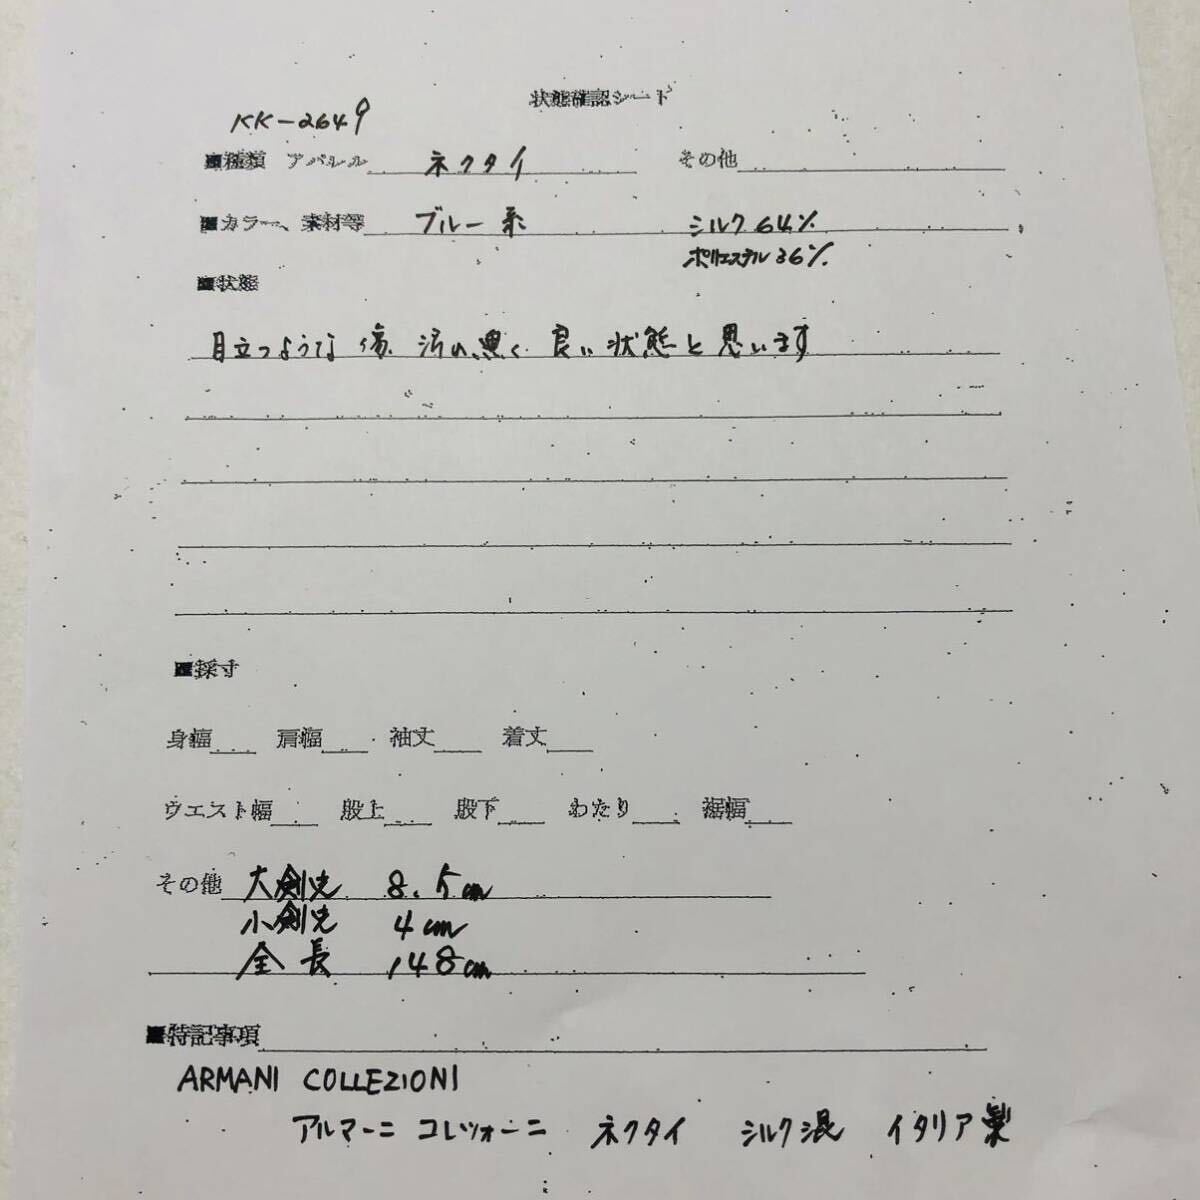 状態確認シート
KK-2649
■種類 アパレル ネクタイ その他
■カラー、素材等 ブルー系 シルク64%
ポリエステル36%
■状態
目立つような傷、汚れ無く、良い状態と思います
■採寸
身幅 肩幅 袖丈 着丈
ウエスト幅 股上 股下 わたり 裾幅
その他 大剣先 8.5cm
小剣先 4cm
全長 148cm
■特記事項
ARMANI COLLEZIONI
アルマーニ コレツォーニ ネクタイ シルク混 イタリア製